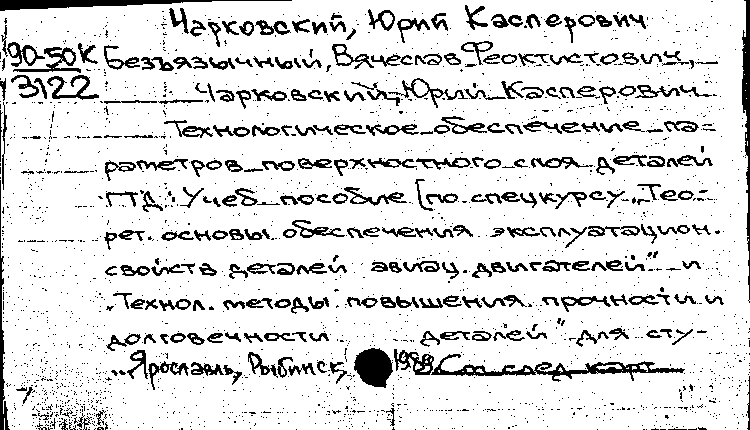 Чарковский, Юрий Касперович
90-50К Безъязычный, Вячеслав Феоктистович,
3122 Чарковский, Юрий Касперович
Технологическое обеспечение па=
раметров поверхностного слоя деталей
ГТД: Учеб. пособие [по спецкурсу „Тео-
рет. основы обеспечения эксплуатацион.
свойств деталей авиац. двигателей" и
„Технол. методы повышения прочности и
долговечности деталей" для сту-
Ярославль, Рыбинск, 1989. См след карт